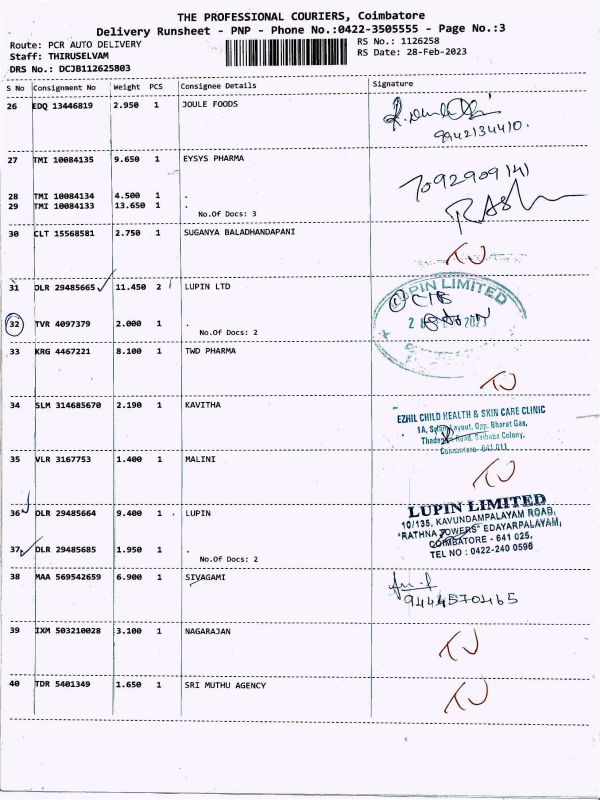 THE PROFESSIONAL COURIERS, Coimbatore
Delivery Runsheet - PNP - Phone No.:0422-3505555 - Page No.:3
Route: PCR AUTO DELIVERY
RS No.: 1126258
Staff: THIRUSELVAM
RS Date: 28-Feb-2023
DRS No.: DCJB112625803
S No Consignment No Weight PCS Consignee Details Signature
26 EDQ 13446819 2.950 1 JOULE FOODS
9942134410.
27 TMI 10084135 9.650 1 EYSYS PHARMA
7092909141
28 TMI 10084134 4.500 1 .
29 TMI 10084133 13.650 1 .
No.Of Docs: 3
30 CLT 15568581 2.750 1 SUGANYA BALADHANDAPANI
TJ
31 DLR 29485665 11.450 2 LUPIN LTD
LUPIN LIMITED
32 TVR 4097379 2.000 1 .
No.Of Docs: 2
33 KRG 4467221 8.100 1 TWD PHARMA
TJ
34 SLM 314685670 2.190 1 KAVITHA
EZHIL CHILD HEALTH & SKIN CARE CLINIC
1A, Layout, Opp. Bharat Gas,
Road, Saibaba Colony,
Coimbatore- 641 011
35 VLR 3167753 1.400 1 MALINI
TJ
36 DLR 29485664 9.400 1 . LUPIN
LUPIN LIMITED
10/135, KAVUNDAMPALAYAM ROAD,
"RATHNA TOWERS" EDAYARPALAYAM,
COIMBATORE - 641 025,
TEL NO : 0422-240 0596
37 DLR 29485685 1.950 1 .
No.Of Docs: 2
38 MAA 569542659 6.900 1 SIVAGAMI
9444570465
39 IXM 503210028 3.100 1 NAGARAJAN
TJ
40 TDR 5401349 1.650 1 SRI MUTHU AGENCY
TJ